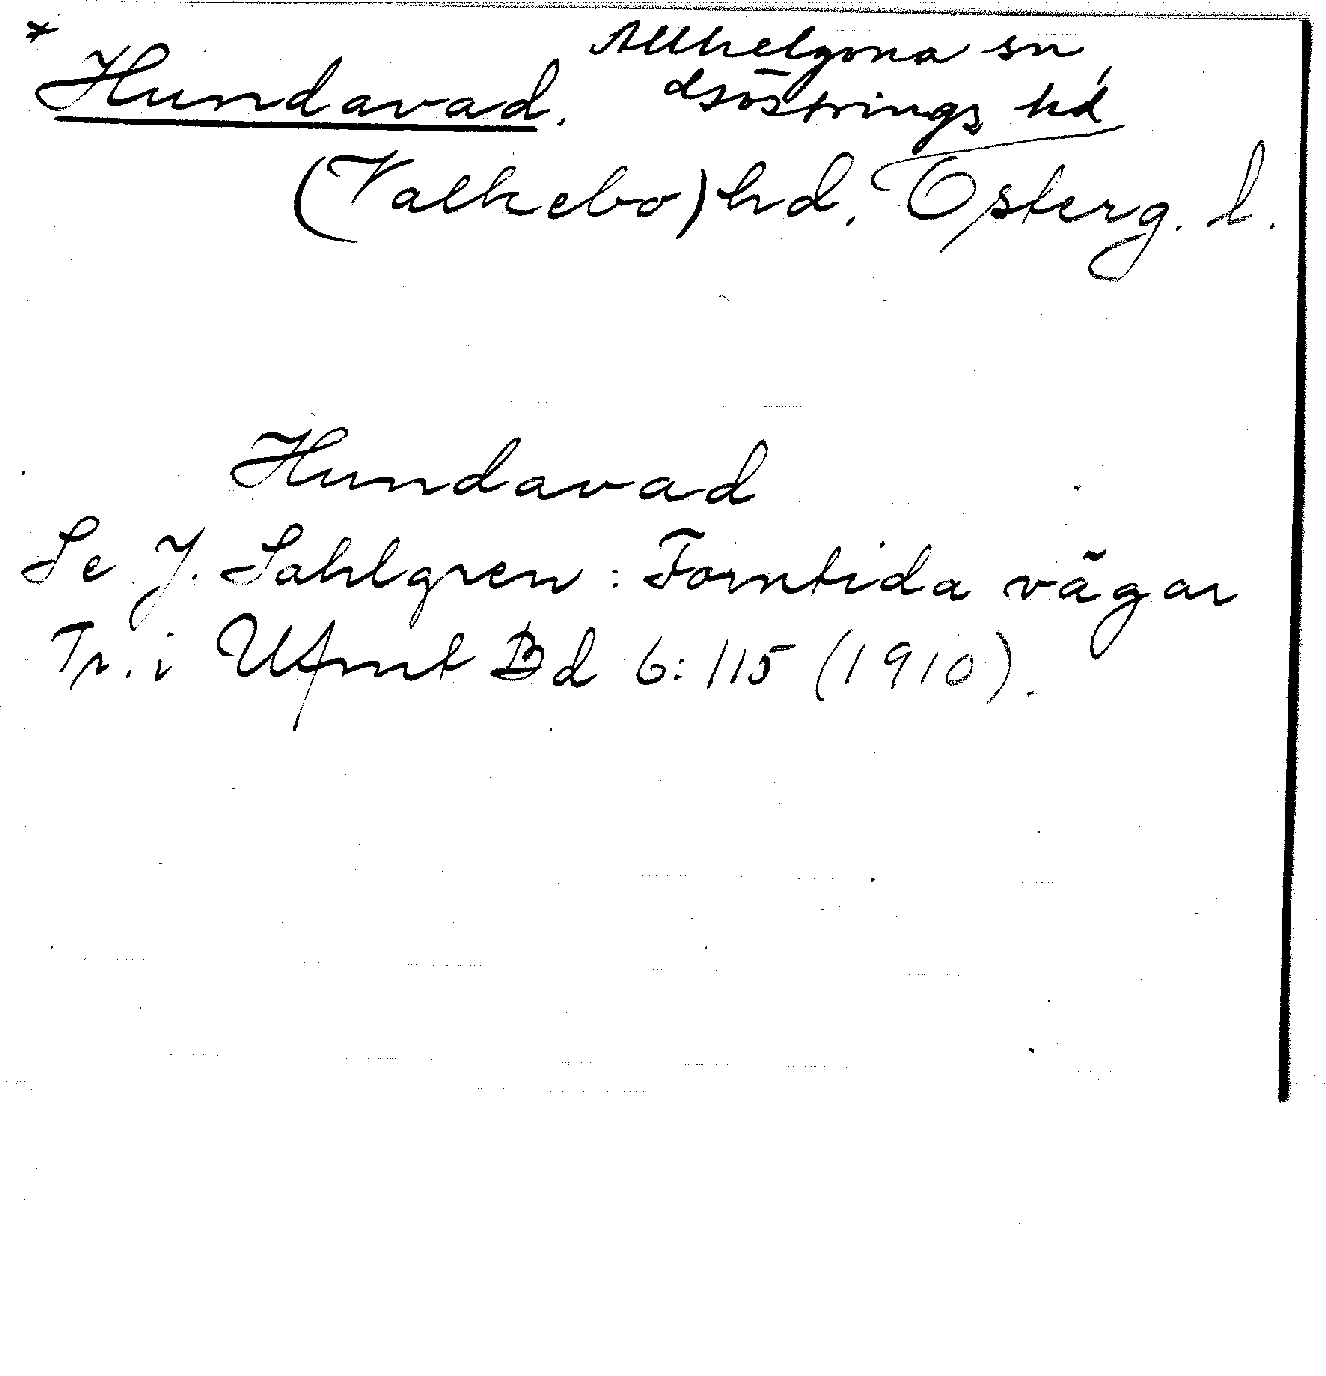 * Hundavad. Allhelgona sn,
Göstrings hd
(Valkebo) hd. Österg. l.
Hundavad
Se J. Sahlgren: Forntida vägar
Tr. i Ufmt Bd 6:115 (1910).